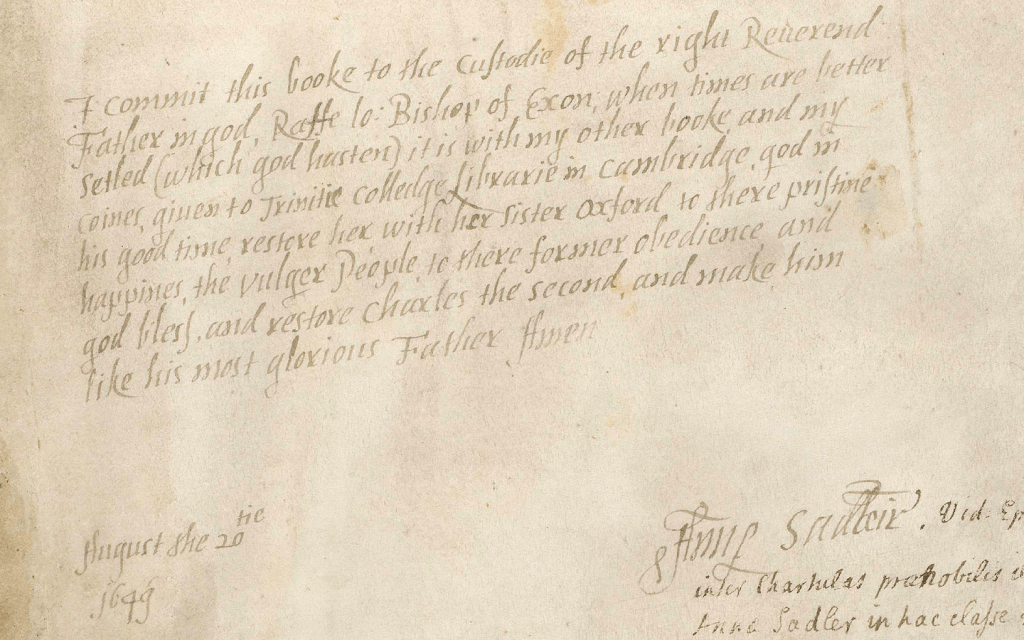 I commit this booke to the Custodie of the right Reuerend
Father in god, Raffe lo: Bishop of Exon, when times are better
setled (which god hasten) it is with my other booke, and my
coines, giuen to Trinitie colledge Librarie in Cambridge, god in
his good time, restore her with her sister Oxford to there pristine
happines, the vulger People, to there former obedience, and
god bless, and restore Charles the second, and make him
like his most glorious Father Amen
August the 20tie
1649
Anne Sadleir. Vid. Ep
inter Chartulas prænobilis
Anna Sadler in hac classe